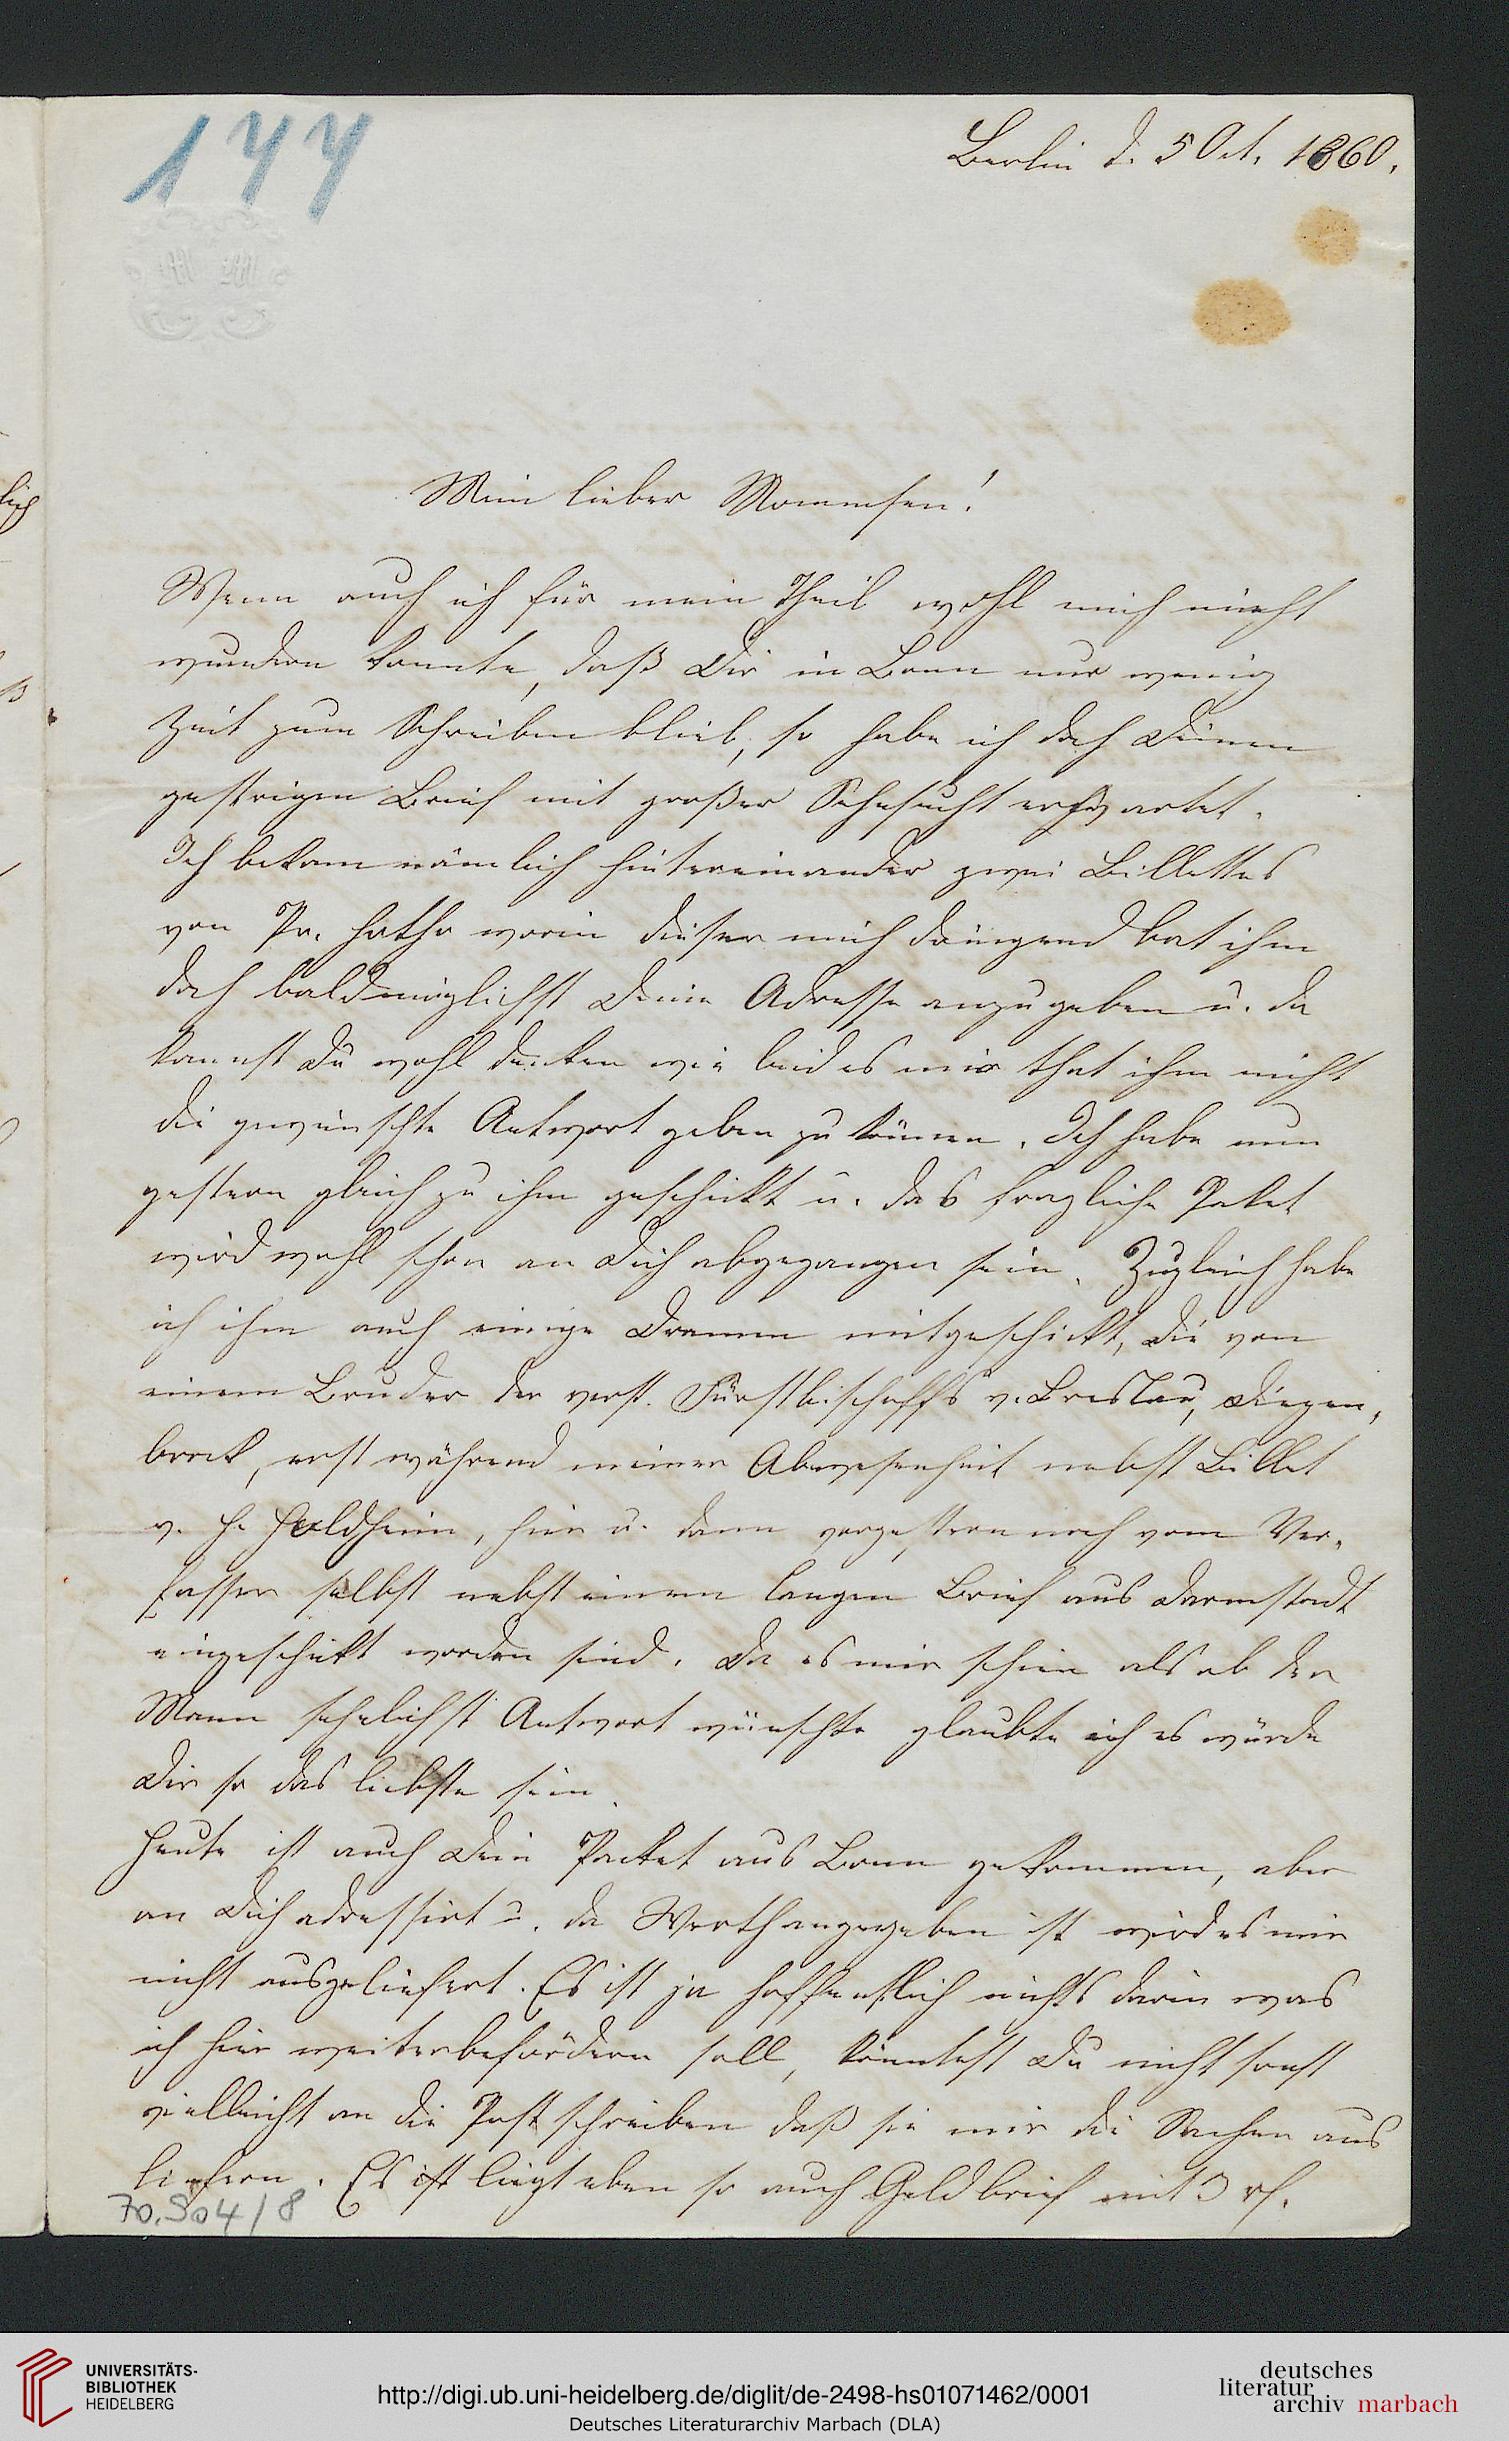 144
Berlin d. 5 Oct. 1860.
Mein lieber Mommsen!
Wenn auch ich für mein Theil wohl mich nicht
wundern konnte, daß Dir in Bonn nur wenig
Zeit zum Schreiben blieb, so habe ich doch Deinen
gestrigen Brief mit großer Sehnsucht erwartet.
Ich bekam nämlich hintereinander zwei Billettes
von Pr. Hotho worin dieser mich dringend bat ihm
doch baldmöglichst Deine Adresse anzugeben u. da
kannst Du wohl denken wie leid es mir that ihm nicht
die gewünschte Antwort geben zu können. Ich habe nun
gestern gleich zu ihm geschickt u. das fragliche Paket
wird wohl schon an Dich abgegangen sein. Zugleich habe
ich ihm auch einige Dramen mitgeschickt, die von
einem Bruder des verst. Fürstbischoffs v. Breslau, Diepen-
brock, erst während meiner Abwesenheit nebst Billet
v. H. Holdheim, hier u. dann vorgestern noch vom Ver-
fasser selbst nebst einem langen Brief aus Darmstadt
eingeschickt worden sind. Da es mir schien als ob der
Mann sehnlichst Antwort wünschte glaubte ich es würde
Dir so das liebste sein.
Heute ist auch Dein Packet aus Bonn gekommen, aber
an Dich adressirt u. da Werth angegeben ist wird es mir
nicht ausgeliefert. Es ist ja hoffentlich nichts darin was
ich hier weiterbefördern soll, könntest Du nicht sonst
vielleicht an die Post schreiben daß sie mir die Sachen aus
liefern. Es ist liegt eben so auch Geldbrief mit 3
70.904/8
lich
ß
UNIVERSITÄTS-
BIBLIOTHEK
HEIDELBERG
http://digi.ub.uni-heidelberg.de/diglit/de-2498-hs01071462/0001
Deutsches Literaturarchiv Marbach (DLA)
deutsches
literatur
archiv marbach